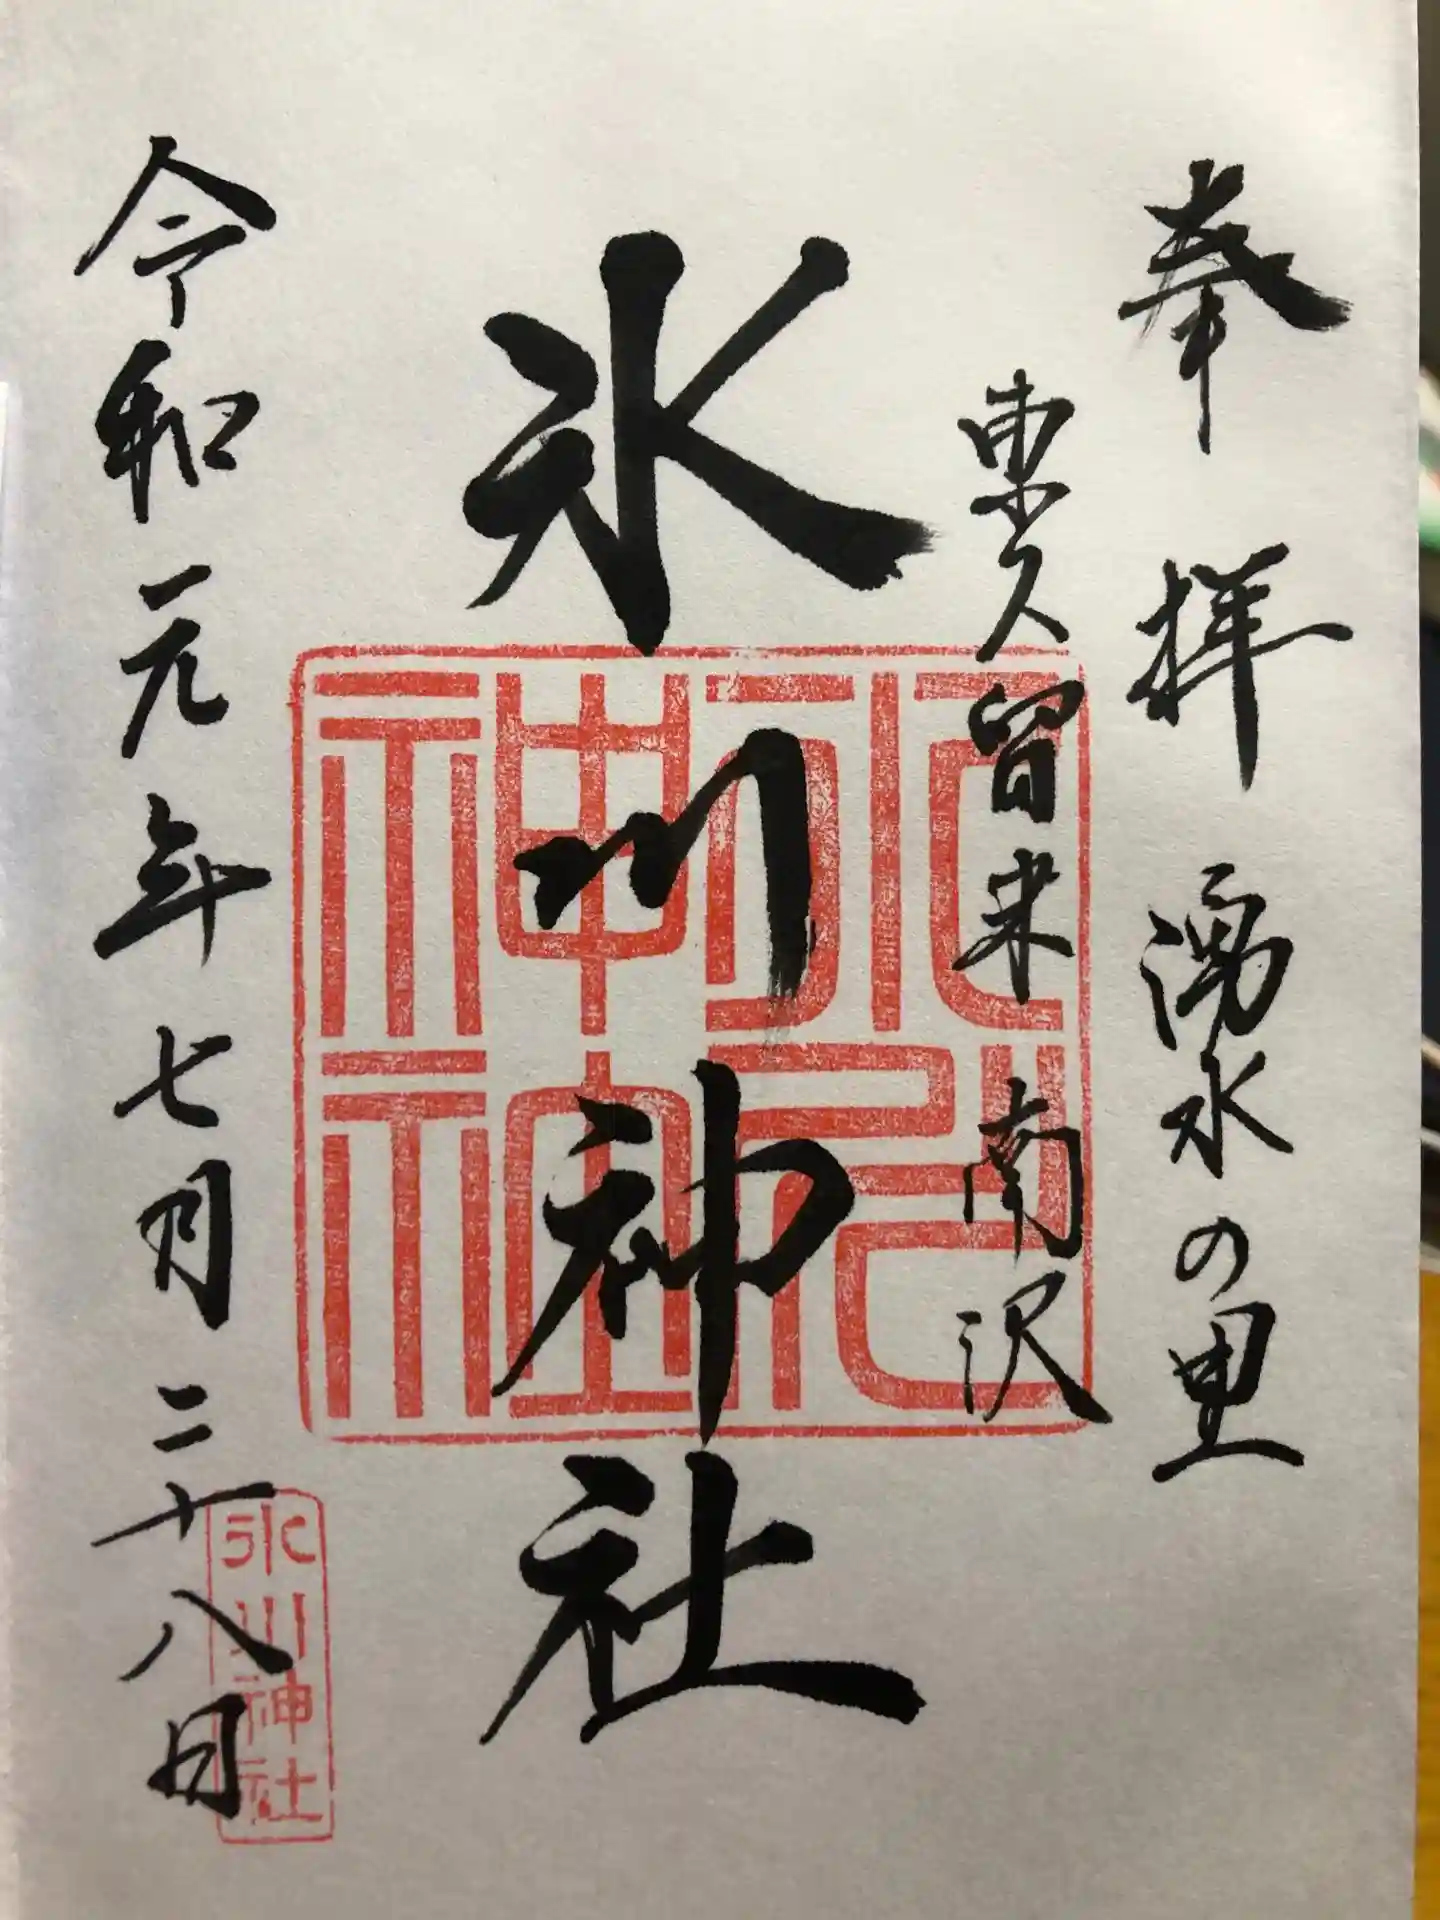 奉拝 湧水の里
東久留米 南沢
氷川神社
氷川神社
令和元年七月二十八日
氷川神社